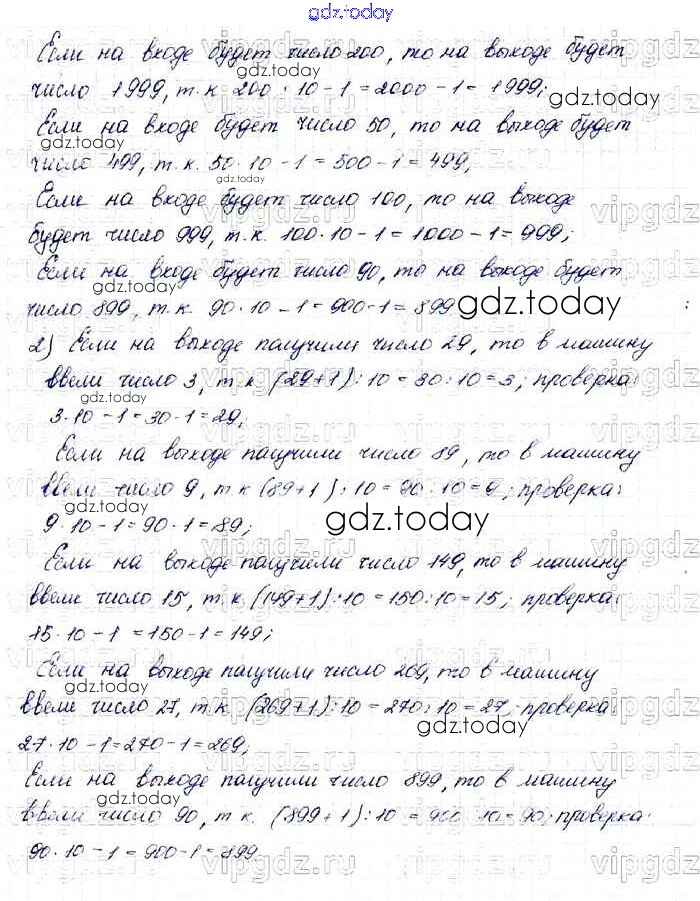 gdz.today
Если на входе будет число 200, то на выходе будет
число 1999, т.к 200 · 10 - 1 = 2000 - 1 = 1999;
Если на входе будет число 50, то на выходе будет
число 499, т.к. 50 · 10 - 1 = 500 - 1 = 499;
Если на входе будет число 100, то на выходе
будет число 999, т.к. 100 · 10 - 1 = 1000 - 1 = 999;
Если на входе будет число 90, то на выходе будет
число 899, т.к. 90 · 10 - 1 = 900 - 1 = 899
2) Если на выходе получили число 29, то в машину
ввели число 3, т.к. (29+1) : 10 = 30 : 10 = 3; проверка:
3 · 10 - 1 = 30 - 1 = 29;
Если на выходе получили число 89, то в машину
ввели число 9, т.к (89+1) : 10 = 90 : 10 = 9; проверка:
9 · 10 - 1 = 90 - 1 = 89;
Если на выходе получили число 149, то в машину
ввели число 15, т.к. (149+1) : 10 = 150 : 10 = 15; проверка:
15 · 10 - 1 = 150 - 1 = 149;
Если на выходе получили число 269, то в машину
ввели число 27, т.к. (269+1) : 10 = 270 : 10 = 27, проверка:
27 · 10 - 1 = 270 - 1 = 269;
Если на выходе получили число 899, то в машину
ввели число 90, т.к. (899+1) : 10 = 900 : 10 = 90; проверка:
90 · 10 - 1 = 900 - 1 = 899